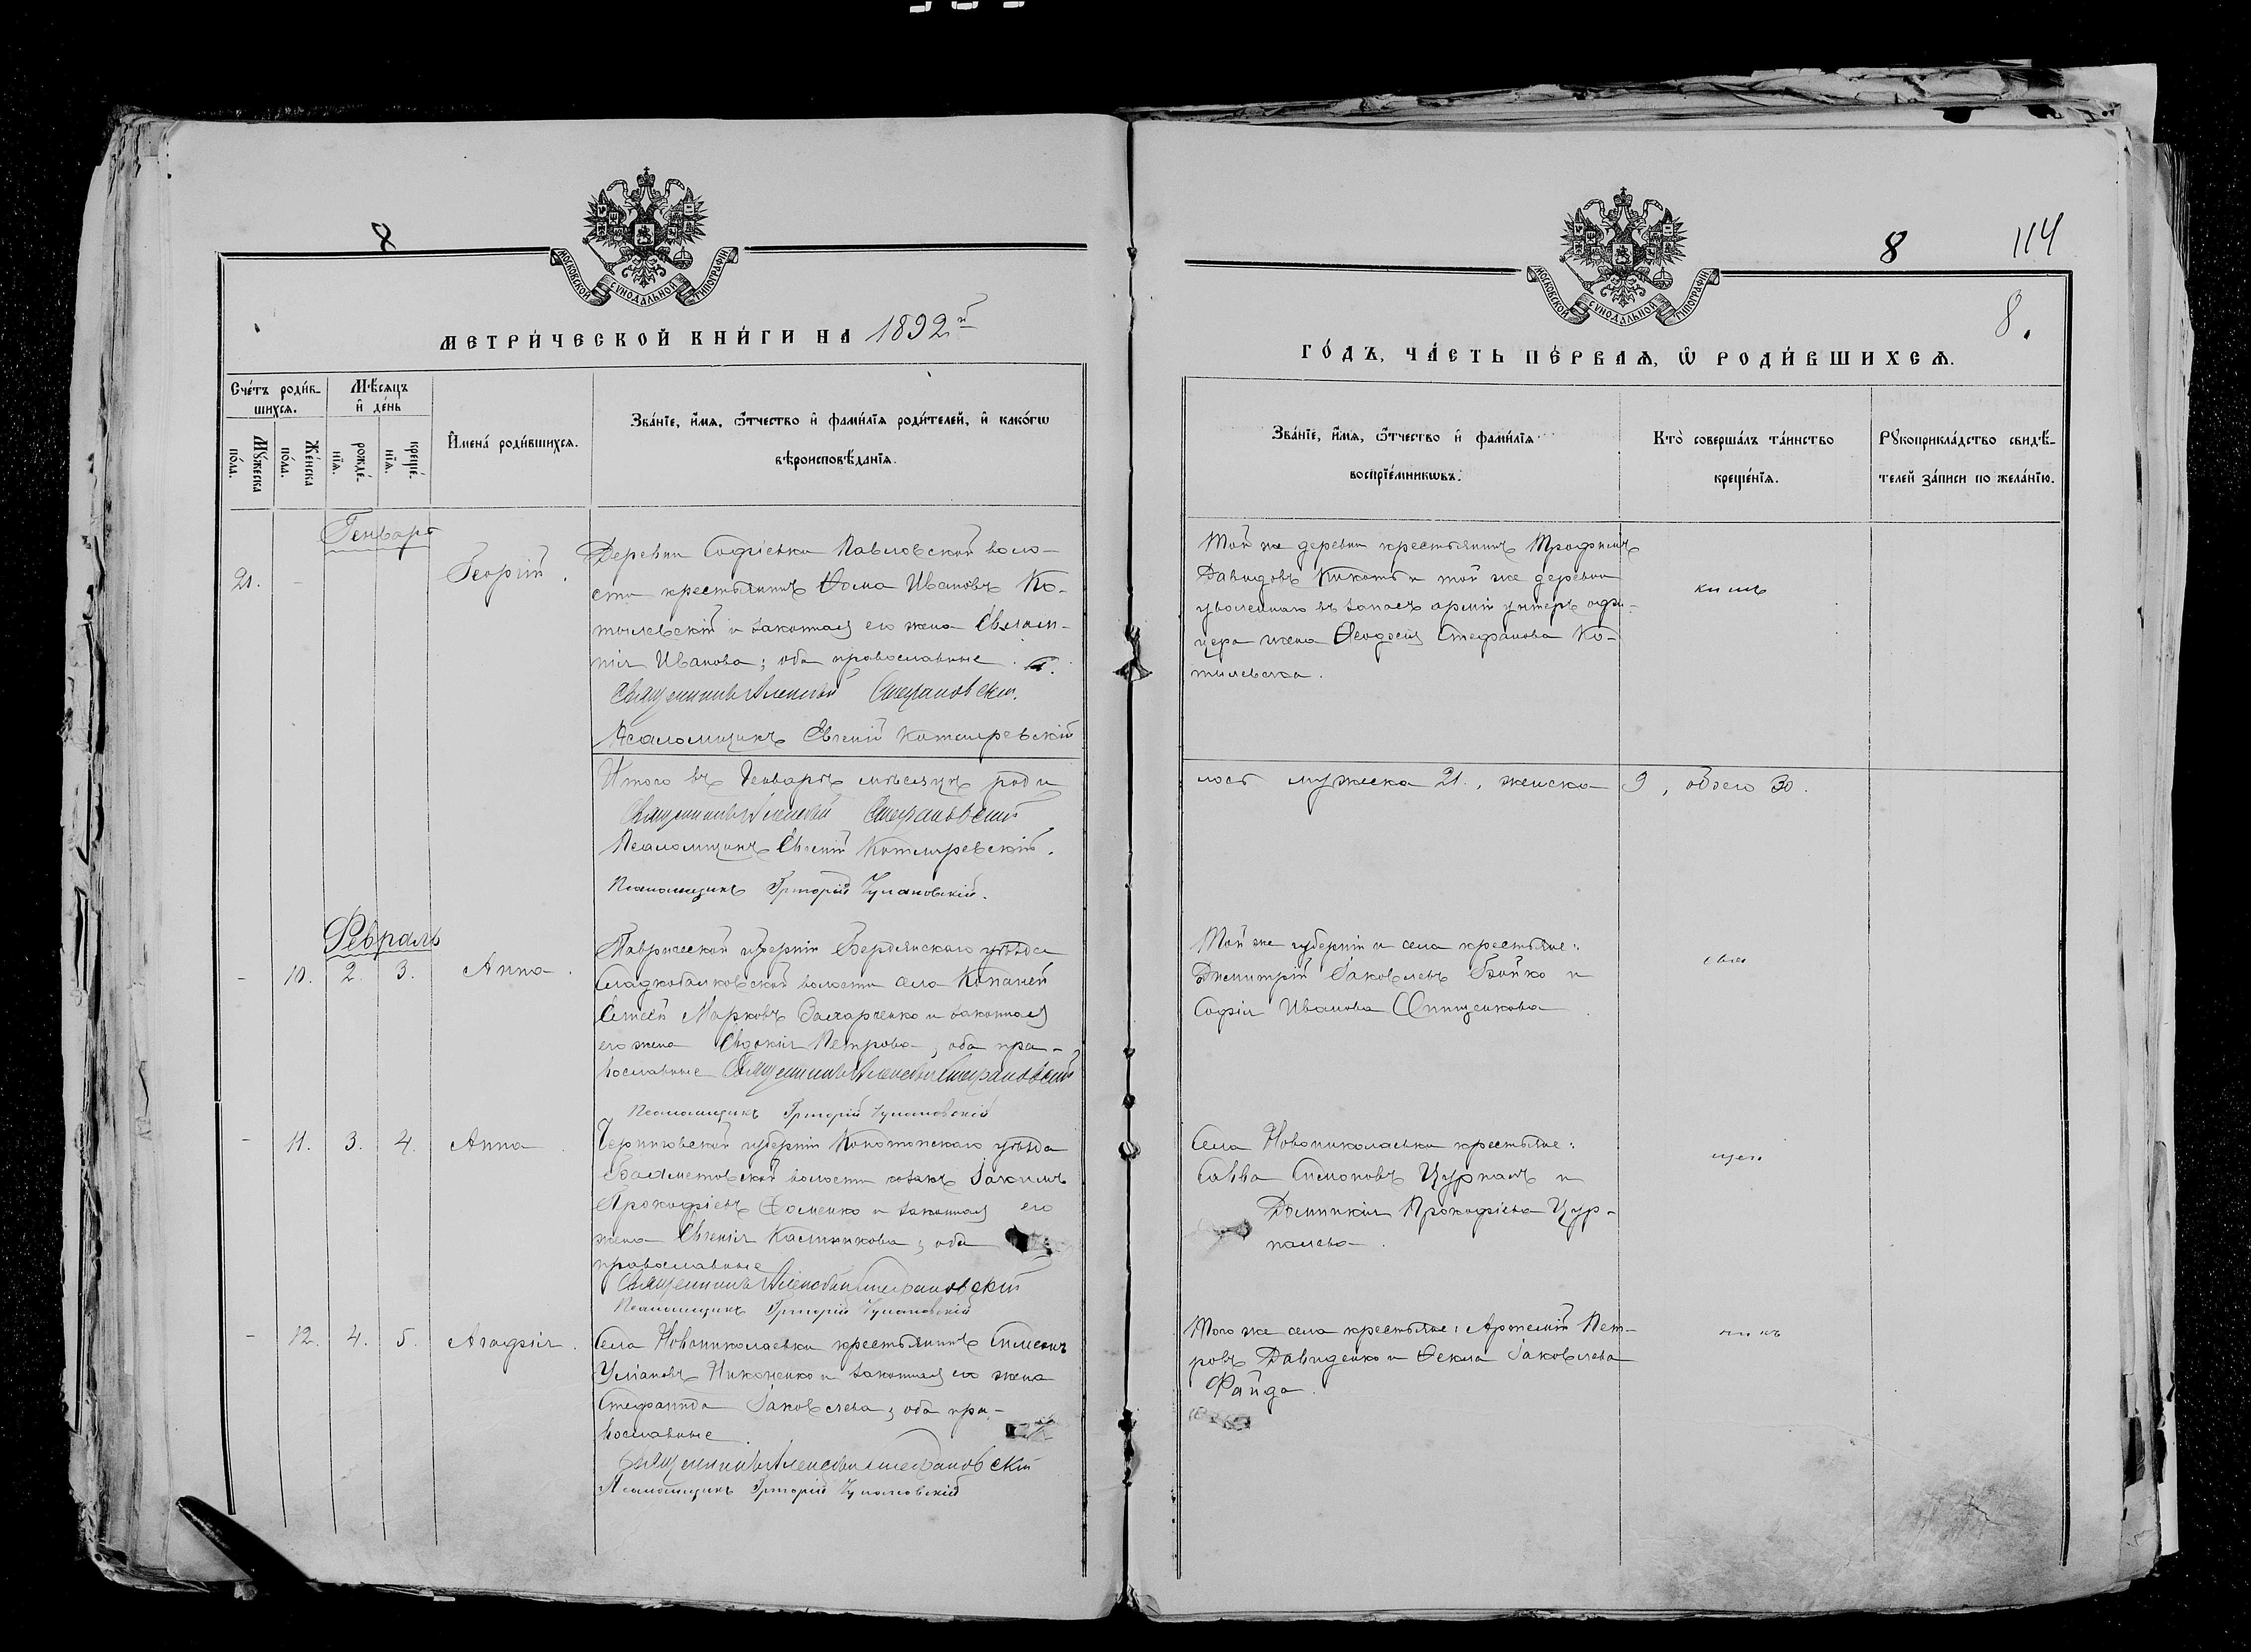 8
МОСКОВСКОЙ СѴНОДАЛЬНОЙ ТИПОГРАФІИ
МЕТРИ́ЧЕСКОЙ КНИ́ГИ НА 1892й
Сче́тъ роди́в-
шихся.
Мѣ́сяцъ
и҆ де́нь
Мꙋ́жеска
по́ла.
Же́нска
по́ла.
рожде́-
нїѧ.
креще́-
нїѧ.
И҆мена́ роди́вшихсѧ.
Зва́нїе, и҆́мѧ, ѻ҆́тчество и҆ фами́лїѧ роди́телей, и҆ како́гѡ
вѣроисповѣ́данїѧ.
Генварь
21. -
Георгій.
Деревни Софіевки Павловской воло-
сти крестьянинъ Ѳома Ивановъ Ко-
тылевскій и законная его жена Евлам-
пія Иванова; оба православные.
Священникъ Алексій Стефановскій.
Псаломщикъ Евгеній Котляревскій
Итого въ Генварѣ мѣсяцѣ роди
Священникъ Алексій Стефановскій
Псаломщикъ Евгеній Котляревскій.
Псаломщикъ Григорій
Февраль
- 10. 2. 3. Анна.
Таврической губерніи Бердянскаго уѣзда
Сладкобалковской волости села Копаней
Марковъ Захарченко и законная
его жена Евдокія Петрова, оба пра-
вославные Священникъ Алексій Стефановскій
Псаломщикъ Григорій
- 11. 3. 4. Анна.
Черниговской губерніи Конотопскаго уѣзда
волости козакъ Іакимъ
Прокофіевъ Ѳоменко и законная его
жена Евгенія Калинникова; оба
православные
Священникъ Алексій Стефановскій
Псаломщикъ Григорій
- 12. 4. 5. Агафія.
Села Новониколаевки крестьянинъ Симеонъ
Никоненко и законная его жена
Стефанида Іаковлева; оба пра-
вославные.
Священникъ Алексій Стефановскій
Псаломщикъ Григорій
8
114
8.
МОСКОВСКОЙ СѴНОДАЛЬНОЙ ТИПОГРАФІИ
ГО́ДЪ, ЧА́СТЬ ПЕ́РВАѦ, Ѡ҆ РОДИ́ВШИХСѦ.
Зва́нїе, и҆́мѧ, ѻ҆́тчество и҆ фами́лїѧ
воспрїе́мникѡвъ.
Кто̀ соверша́лъ та́инство
креще́нїѧ.
Рꙋкоприкла́дство свидѣ́-
телей за́писи по жела́нїю.
Той же деревни крестьянинъ Трофимъ
Давидовъ Кикоть и той же деревни
уволеннаго въ запасъ арміи унтеръ офи-
цера жена Ѳеодосія Стефанова Ко-
тылевска.
лось мужеска 21., женска 9, обоего 30.
Той же губерніи и села крестьяне:
Димитрій Іаковлевъ Бойко и
Софія Иванова Онищенкова
Села Новониколаевки крестьяне:
Савва Симоновъ Цурпалъ и
Домникія Прокофіева Цур-
палева.
Того же села крестьяне: Артемій Пет-
ровъ Давиденко и Ѳекла Іаковлева
Файда.